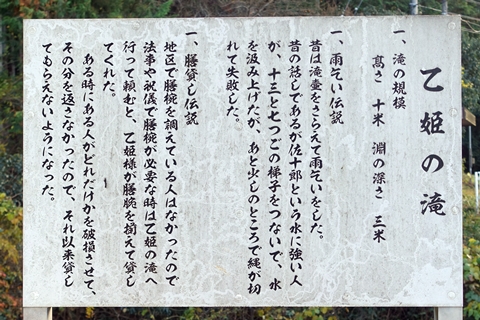 乙姫の滝
一、滝の規模
高さ 十米 淵の深さ 三米
一、雨乞い伝説
昔は滝壷をさらえて雨乞いをした。
昔の話しであるが佐十郎という水に強い人
が、十三と七つごの梯子をつないで、水
を汲み上げたが、あと少しのところで縄が切
れて失敗した。
一、膳貸し伝説
地区で膳椀を調えている人はなかったので
法事や祝儀で膳椀が必要な時は乙姫の滝へ
行って頼むと、乙姫様が膳椀を揃えて貸し
てくれた。
ある時にある人がどれだけかを破損させて、
その分を返さなかったので、それ以来貸し
てもらえないようになった。